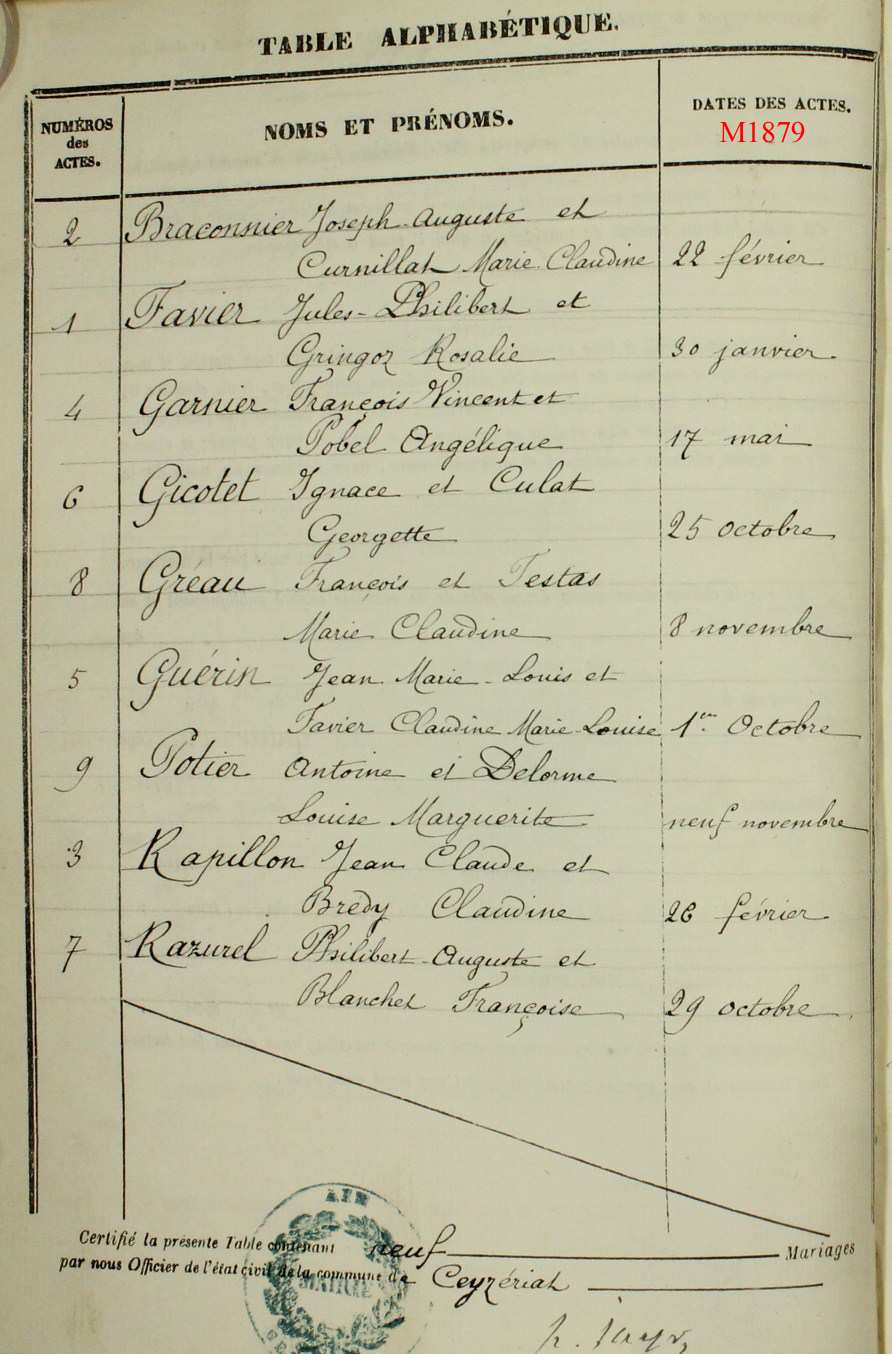 TABLE ALPHABÉTIQUE.
NUMÉROS
des
ACTES.
NOMS ET PRÉNOMS.
DATES DES ACTES.
M1879
2 Braconnier Joseph-Auguste et
Curnillat Marie Claudine 22 février
1 Favier Jules-Philibert et
Gringoz Rosalie 30 janvier
4 Garnier François Vincent et
Pobel Angélique 17 mai
6 Gicotet Ignace et Culat
Georgette 25 octobre
8 Gréau François et Testas
Marie Claudine 8 novembre
5 Guérin Jean Marie-Louis et
Favier Claudine Marie-Louise 1er Octobre
9 Potier Antoine et Delorme
Louise Marguerite neuf novembre
3 Rapillon Jean Claude et
Bredy Claudine 26 février
7 Razurel Philibert-Auguste et
Blanchet Françoise 29 octobre
AIN
Certifié la présente Table contenant neuf Mariages
par nous Officier de l'état civil de la commune de Ceyzériat
MAIRIE